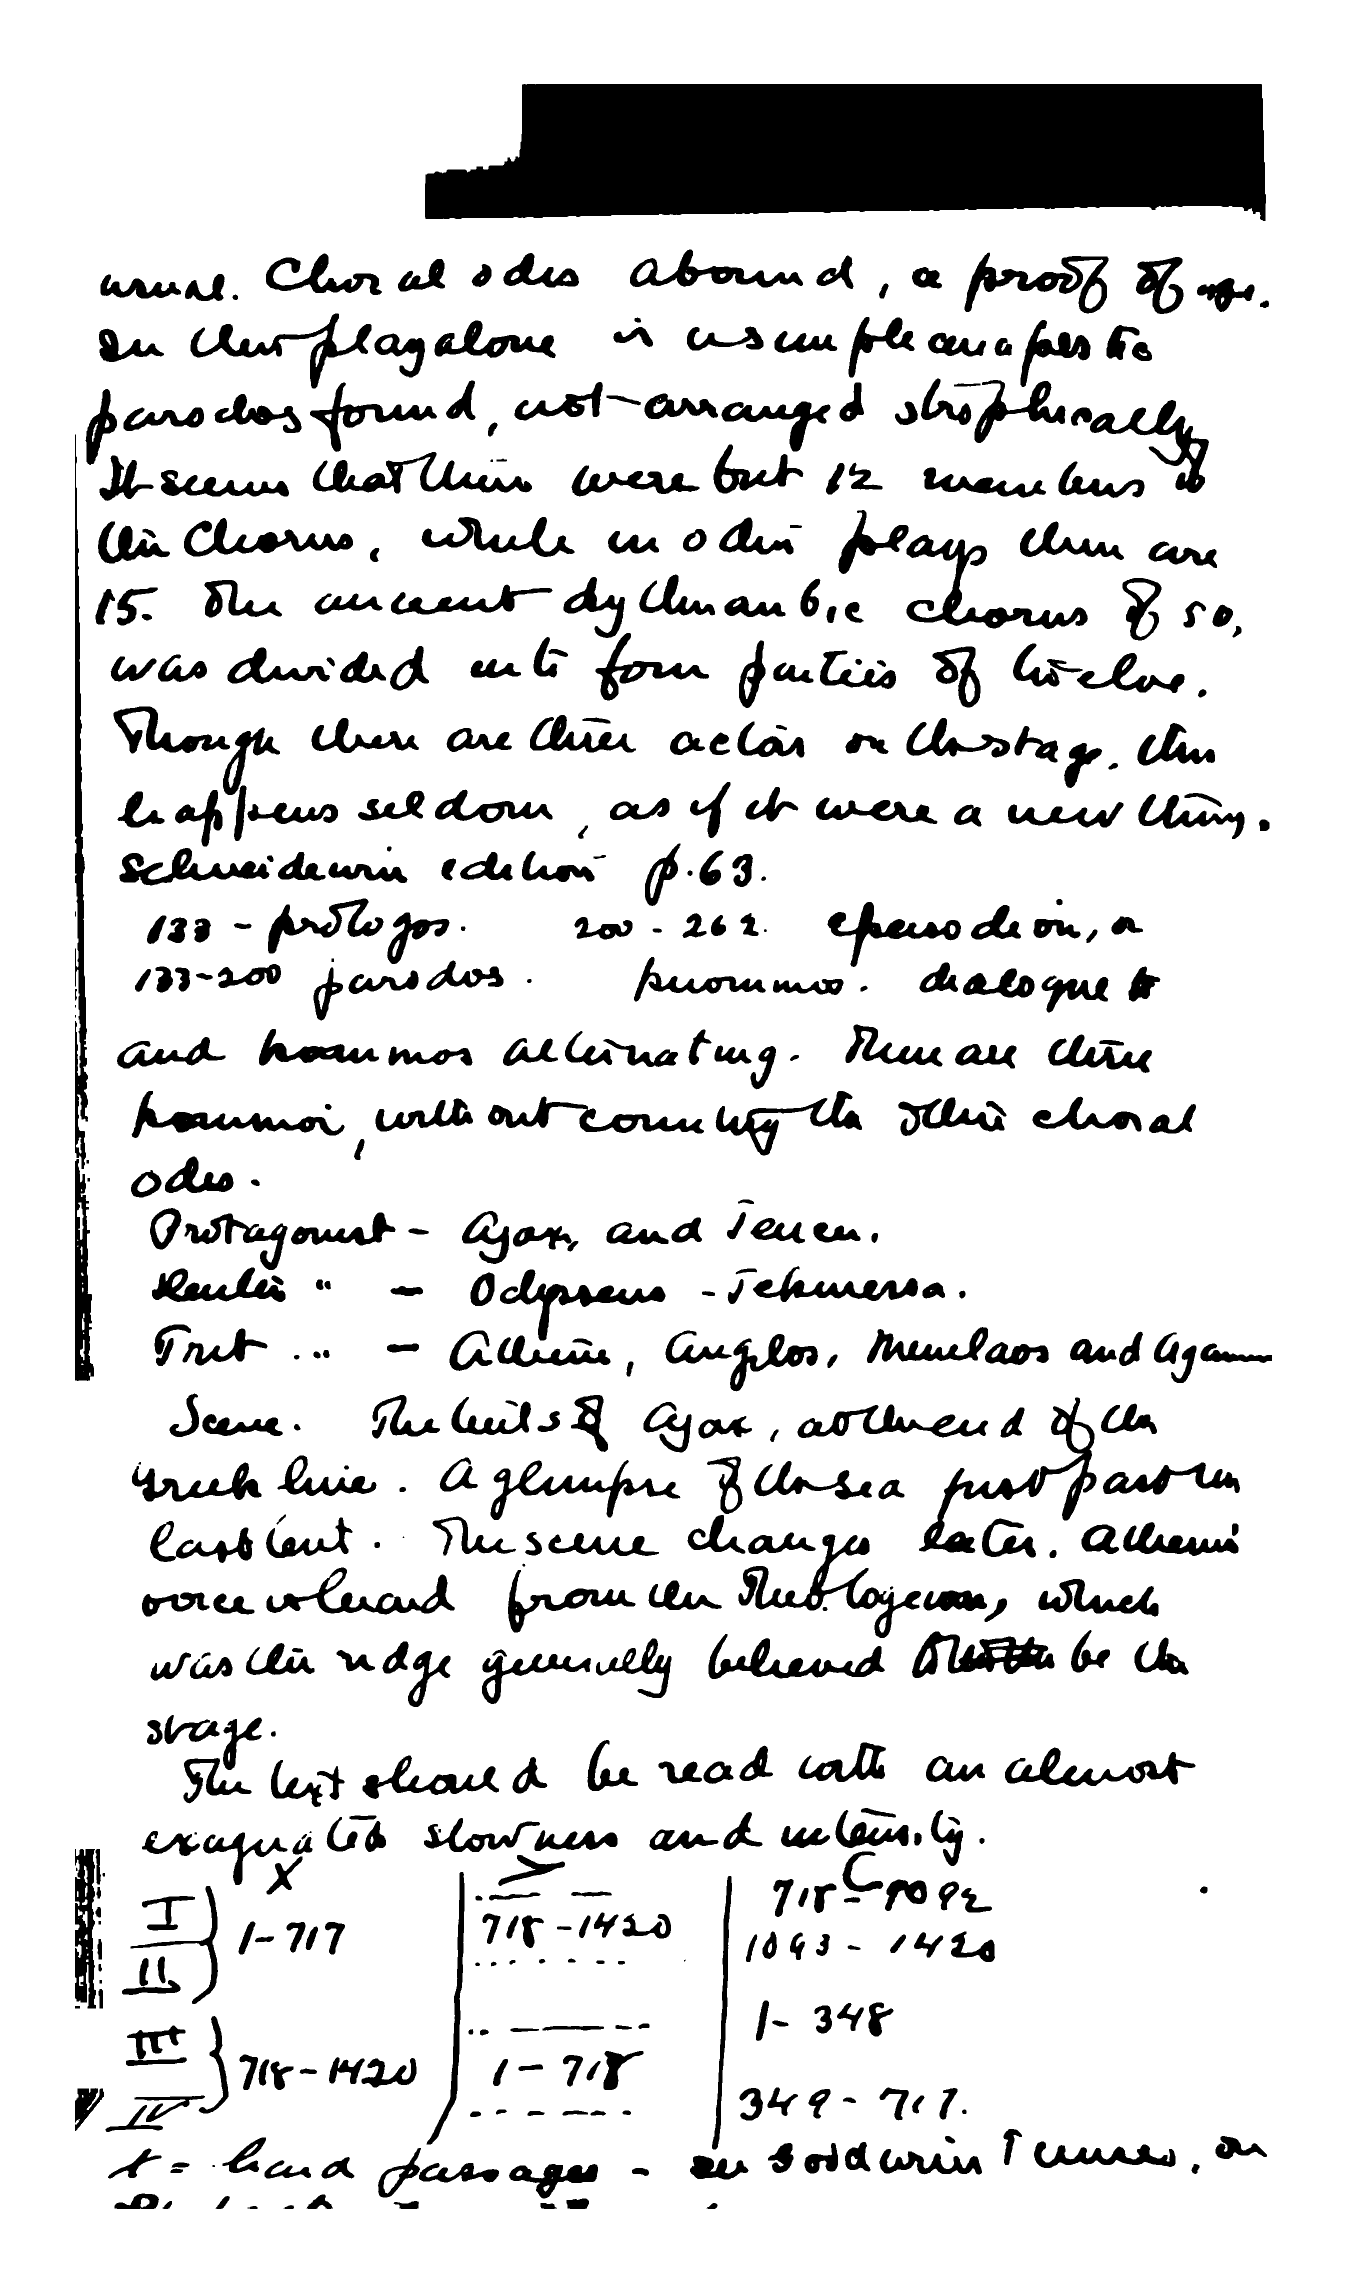 usual. Choral odes abound, a proof of age.
In this play alone is a simple anapaestic
parodos found, not arranged strophically
It seems that there were but 12 members of
the Chorus, while in other plays there are
15. The ancient dythrambic chorus of 50,
was divided into four parties of twelve.
Though there are three actors on the stage, this
happens seldom, as if it were a new thing.
Schneidewin edition p. 63.
133 - prologos. 200 - 262. epeisodeion, or
133-200 parodos. kommos. dialogue
and kommos alternating. There are three
kommoi, without counting the other choral
odes.
Protagonist - Ajax, and Teucer.
Deuter " - Odysseus - Tekmessa.
Trit ... " - Athene, Angelos, Menelaos and Agam
Scene. The tents of Ajax, at the end of the
Greek line. A glimpse of the sea just past the
last tent. The scene changes later. Athene's
voice is heard from the Theologeion, which
was the ridge generally believed to be the
stage.
The text should be read with an almost
exaguated slowness and intensity.
X > C
I II } 1-717
718-1420
718-1092
1093-1420
III IV } 718-1420
1-718
1-348
349-717.
t = hard passages - in Goodwin Tenses, on